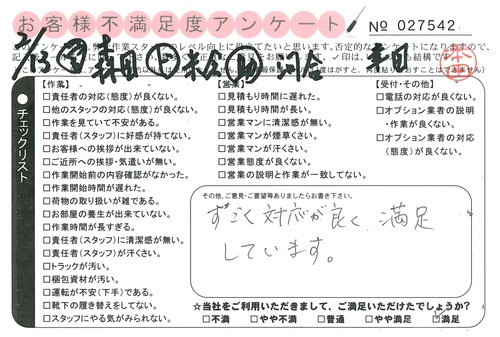 お客様不満足度アンケート
№ 027542
2/13
チェックリスト
【作業】
□責任者の対応(態度)が良くない。
□他のスタッフの対応(態度)が良くない。
□作業を見ていて不安がある。
□責任者(スタッフ)に好感が持てない。
□お客様への挨拶が出来ていない。
□ご近所への挨拶・気遣いが無い。
□作業開始前の内容確認がなかった。
□作業開始時間が遅れた。
□荷物の取り扱いが雑である。
□お部屋の養生が出来ていない。
□作業時間が長すぎる。
□責任者(スタッフ)に清潔感が無い。
□責任者(スタッフ)が汗くさい。
□トラックが汚い。
□梱包資材が汚い。
□運転が不安(下手)である。
□靴下の履き替えをしてない。
□スタッフにやる気がみられない。
【営業】
□見積もり時間に遅れた。
□見積もり時間が長い。
□営業マンに清潔感が無い。
□営業マンが煙草くさい。
□営業マンが汗くさい。
□営業態度が良くない。
□営業の説明と作業が一致してない。
【受付・その他】
□電話の対応が良くない。
□オプション業者の説明
・作業が良くない。
□オプション業者の対応
(態度)が良くない。
その他、ご意見・ご要望等ありましたらお書き下さい。
すごく対応が良く、満足
しています。
☆当社をご利用いただきまして、ご満足いただけたでしょうか?
□不満 □やや不満 □普通 □やや満足 ☑満足